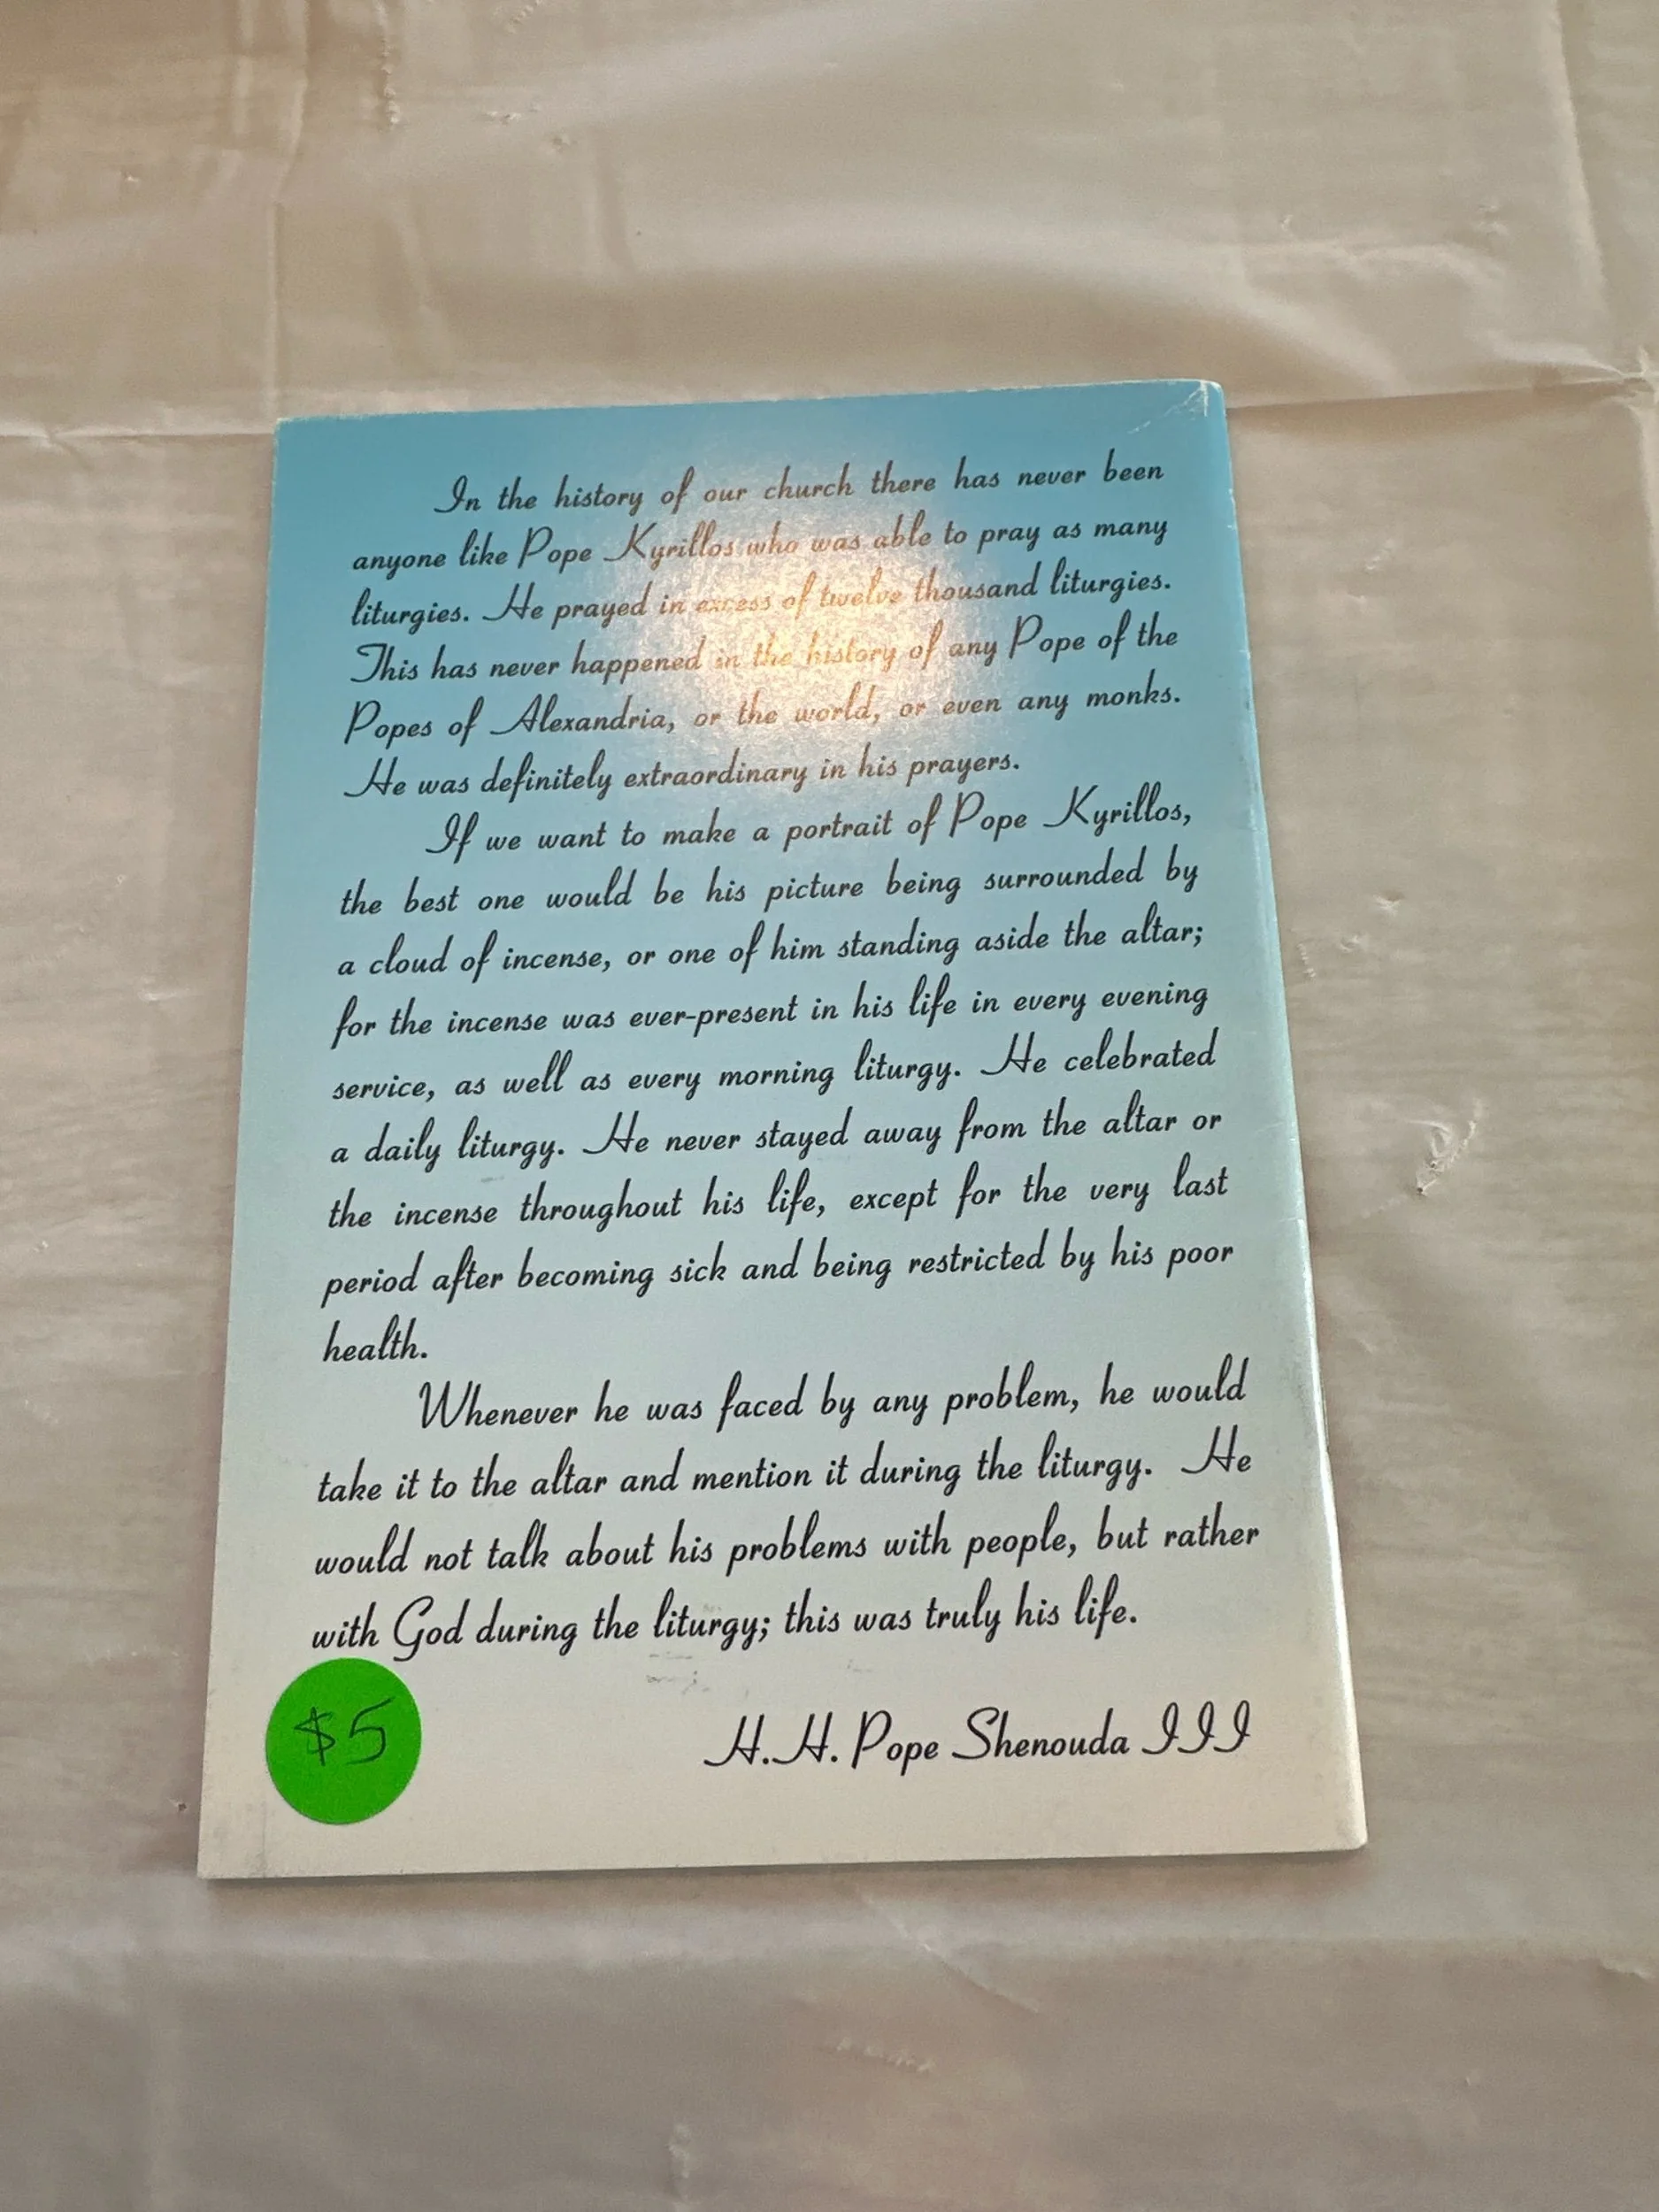 In the history of our church there has never been
anyone like Pope Kyrillos who was able to pray as many
liturgies. He prayed in excess of twelve thousand liturgies.
This has never happened in the history of any Pope of the
Popes of Alexandria, or the world, or even any monks.
He was definitely extraordinary in his prayers.
If we want to make a portrait of Pope Kyrillos,
the best one would be his picture being surrounded by
a cloud of incense, or one of him standing aside the altar;
for the incense was ever-present in his life in every evening
service, as well as every morning liturgy. He celebrated
a daily liturgy. He never stayed away from the altar or
the incense throughout his life, except for the very last
period after becoming sick and being restricted by his poor
health.
Whenever he was faced by any problem, he would
take it to the altar and mention it during the liturgy. He
would not talk about his problems with people, but rather
with God during the liturgy; this was truly his life.
$5
H.H. Pope Shenouda III